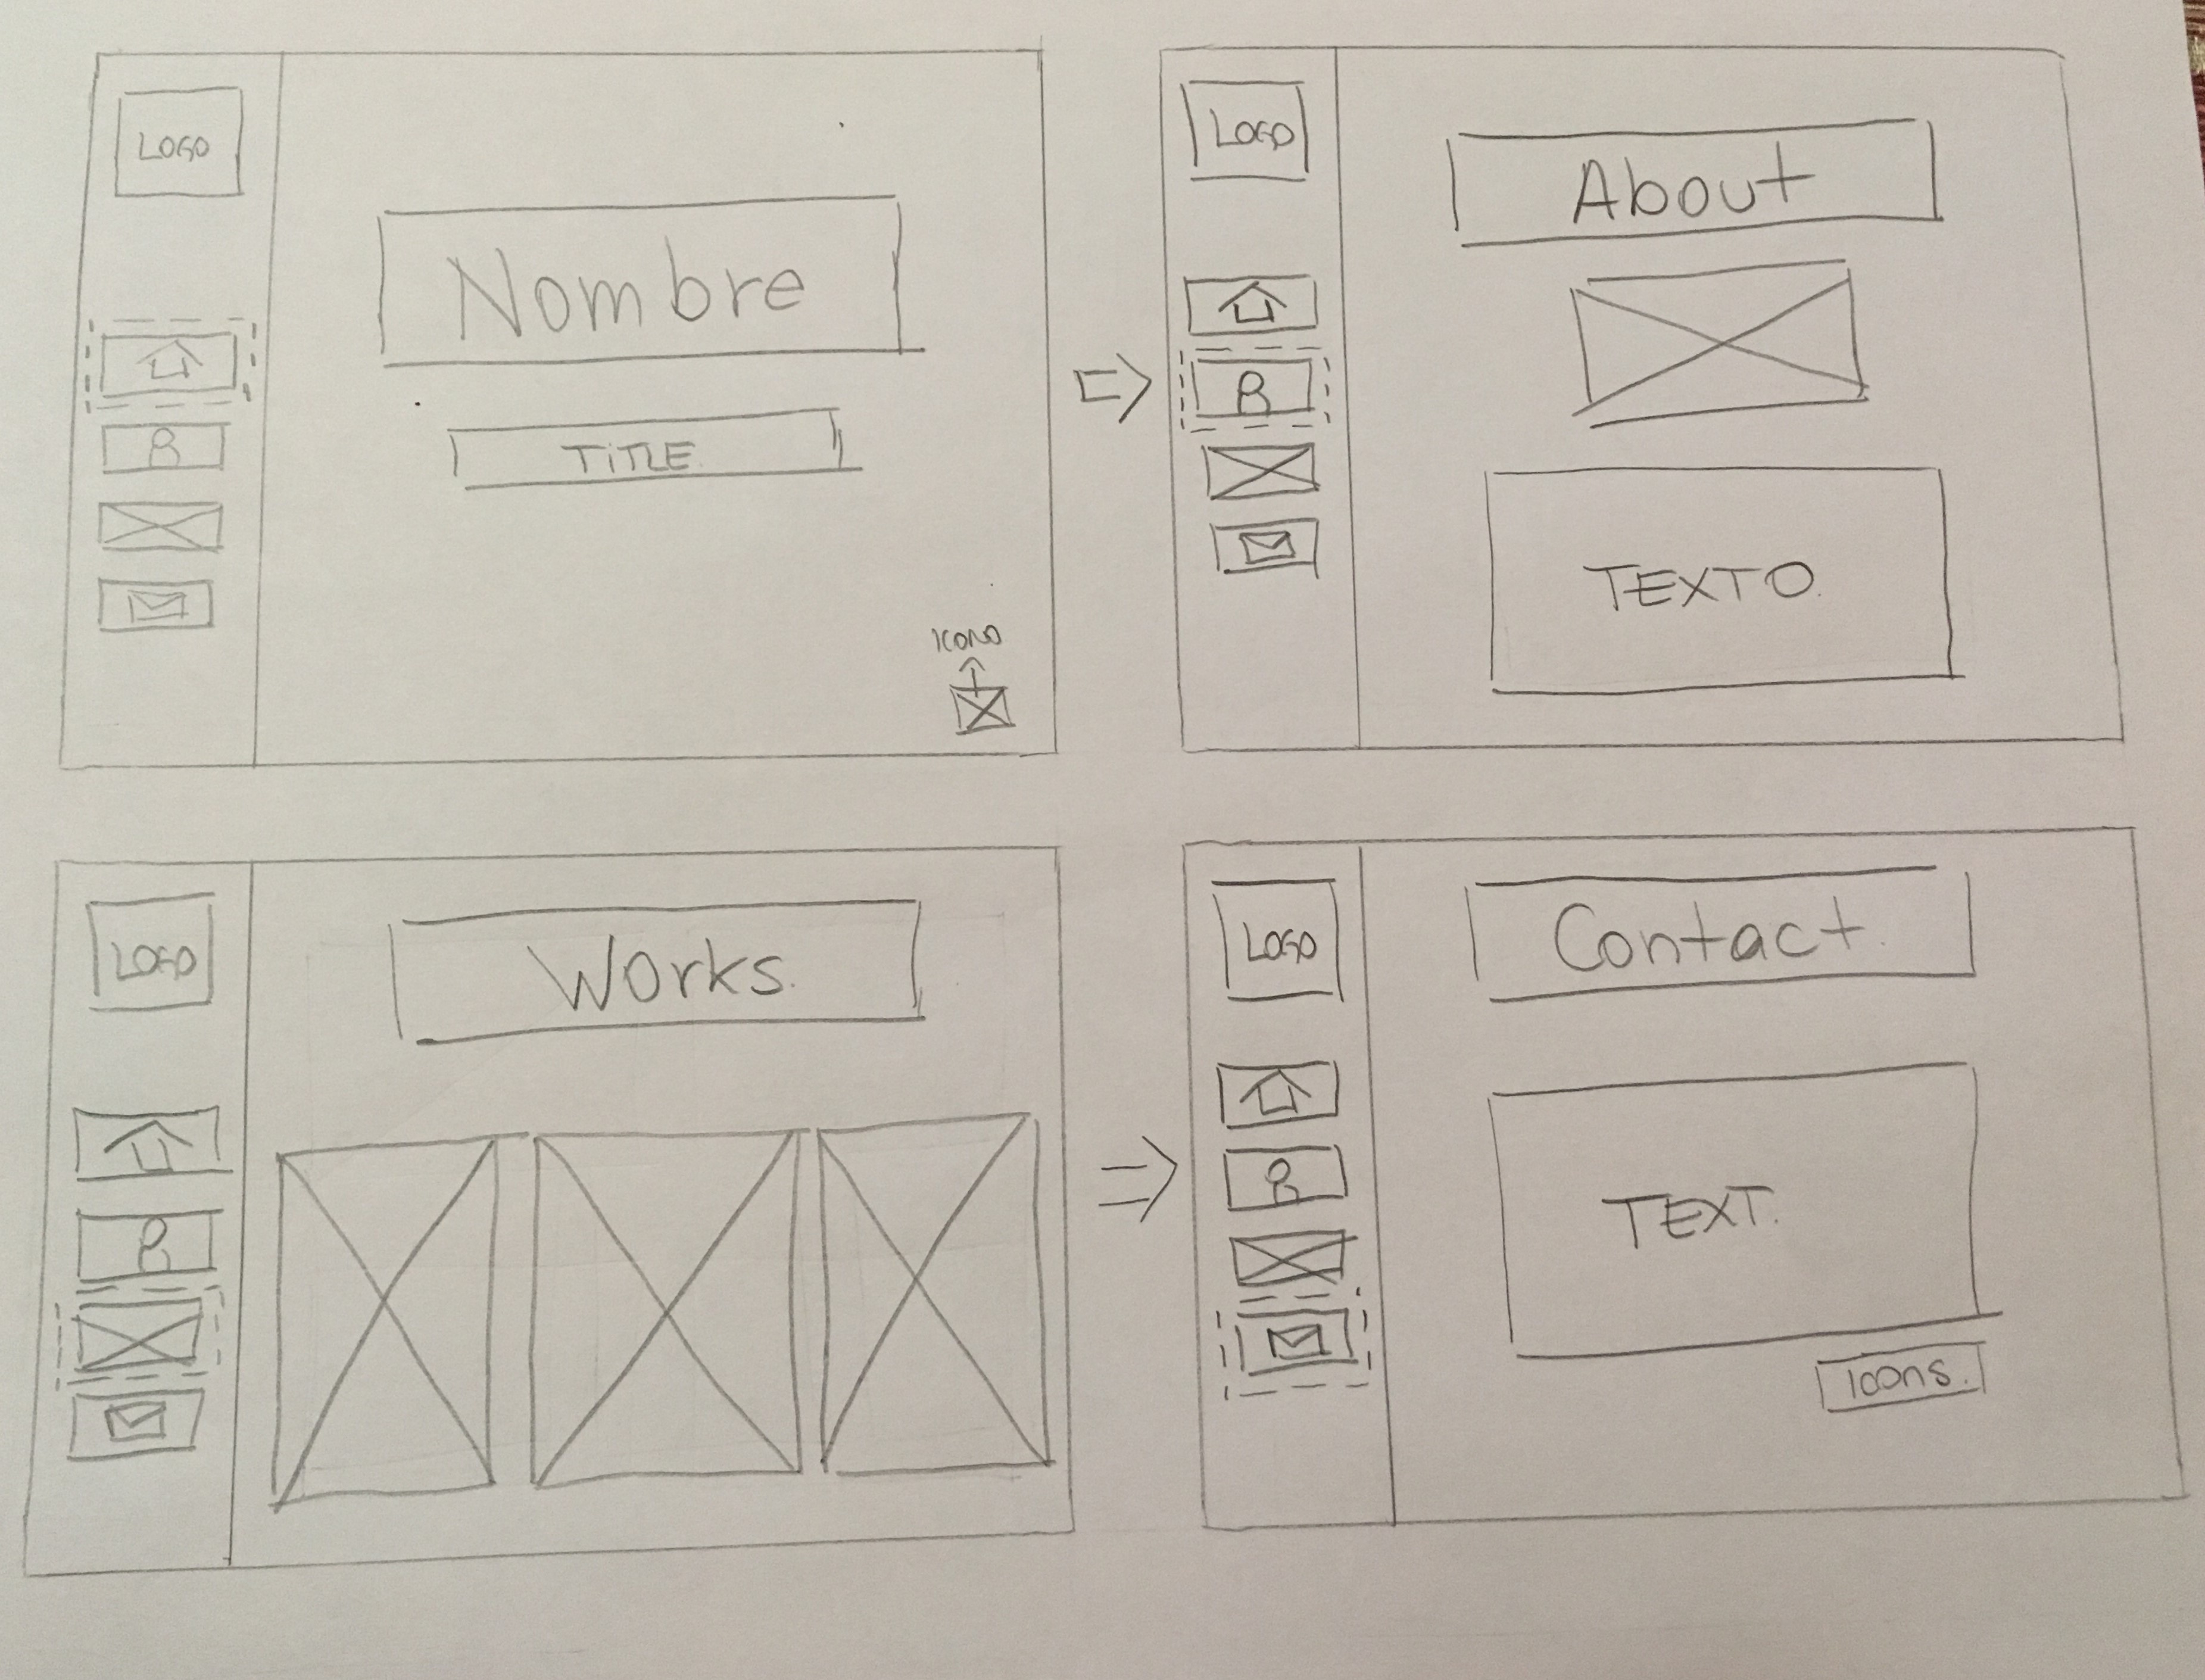 LOGO
Nombre
TITLE.
ICONO
LOGO
About
TEXTO.
LOGO
Works.
LOGO
Contact.
TEXT.
Icons.